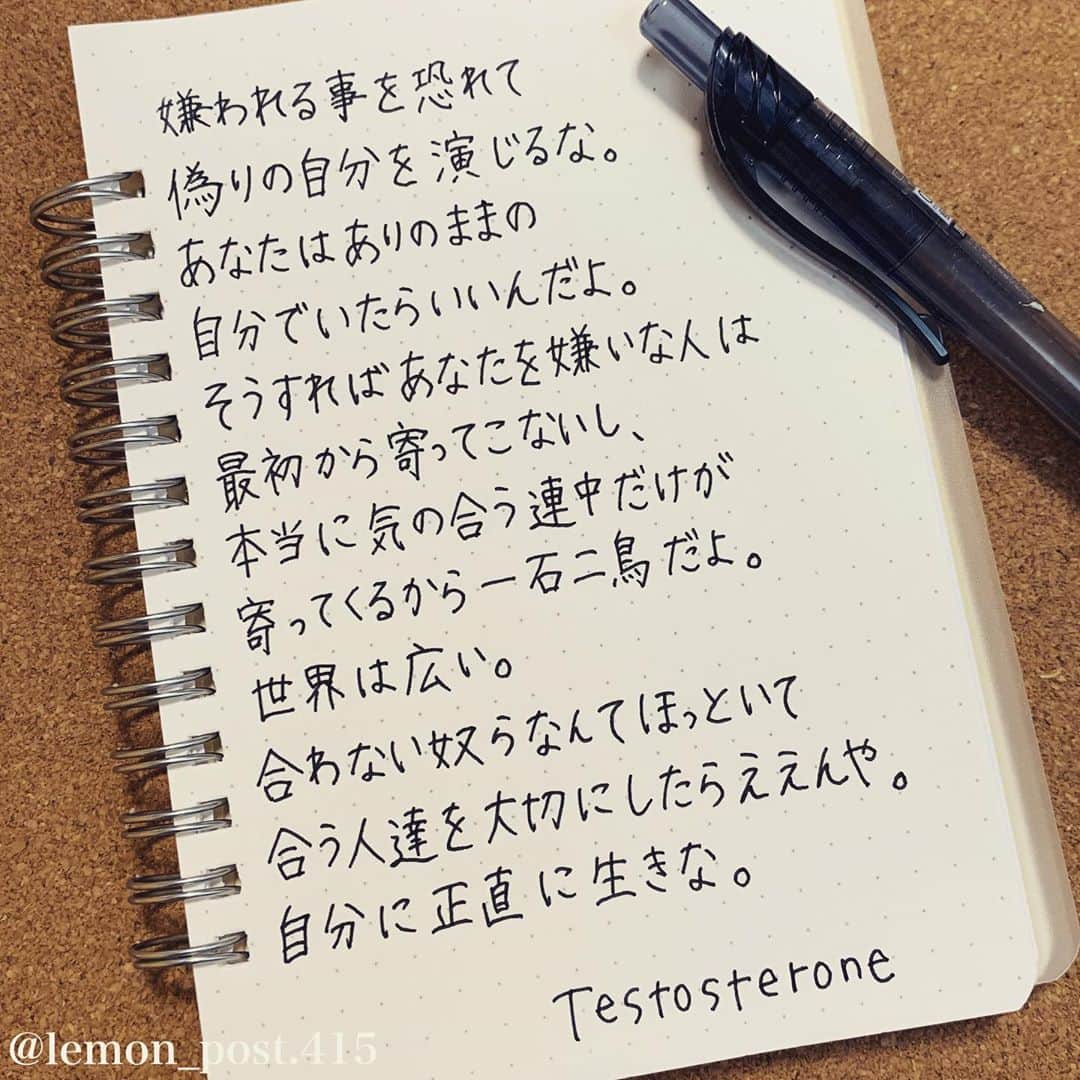 嫌われる事を恐れて
偽りの自分を演じるな。
あなたはありのままの
自分でいたらいいんだよ。
そうすればあなたを嫌いな人は
最初から寄ってこないし、
本当に気の合う連中だけが
寄ってくるから一石二鳥だよ。
世界は広い。
合わない奴らなんてほっといて
合う人達を大切にしたらええんや。
自分に正直に生きな。
Testosterone
@lemon_post.415